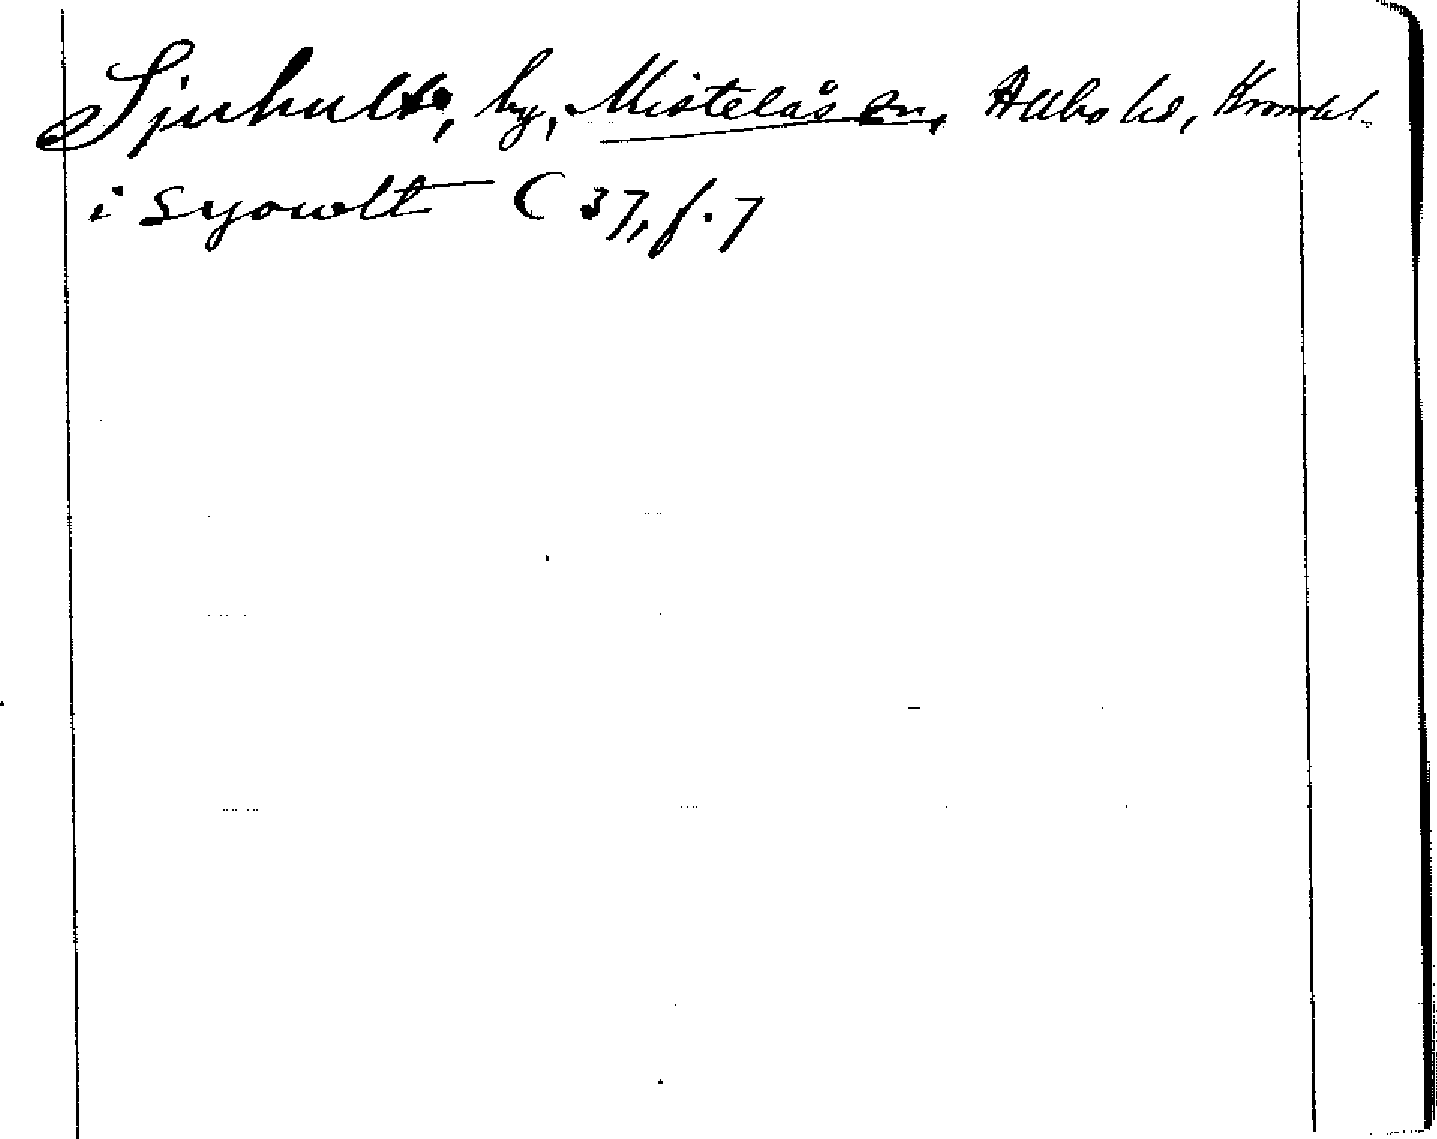 Sjuhult, by, Mistelås sn, Allbo hd, Kronobl.
i syowlt C 37, f. 7